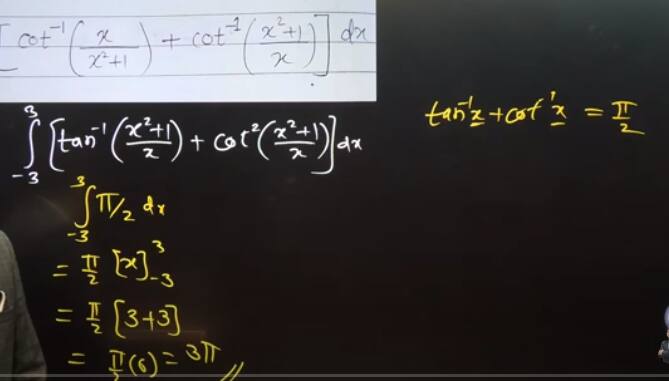 [cot⁻¹(x/(x²+1)) + cot⁻¹((x²+1)/x)] dx
∫₋₃³ [tan⁻¹((x²+1)/x) + cot²((x²+1)/x)] dx
tan⁻¹x + cot⁻¹x = π/2
∫₋₃³ π/2 dx
= π/2 [x]₋₃³
= π/2 [3+3]
= π/2 (6) = 3π //